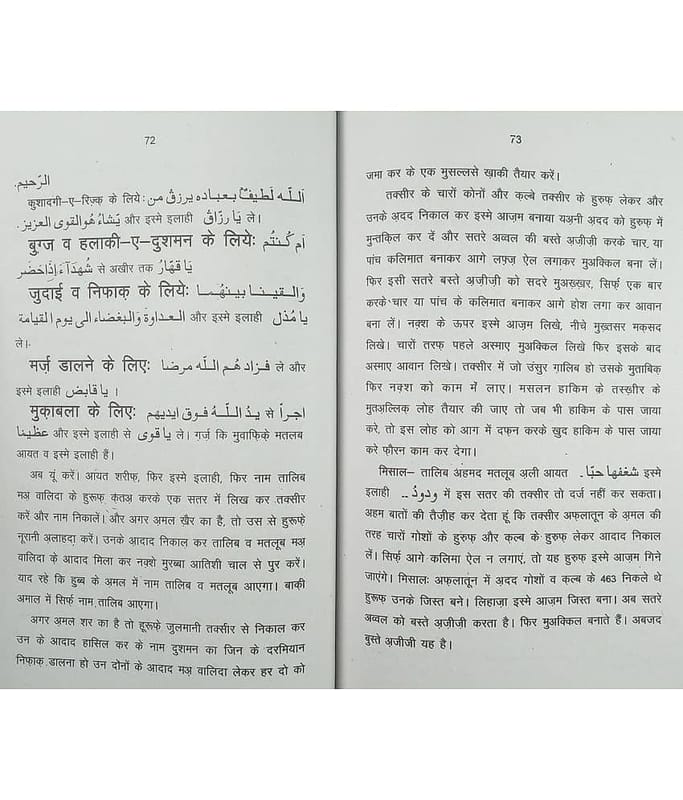 72
الرّحيم.
कुशादगी-ए-रिज़्क़ के लिये: اَللّه لَطِيفٌ بعباده يرزق من
يّشاءُ هُوالقوى العزيز. और इस्मे इलाही يا رزّاق ले।
बुग्ज़ व हलाकी-ए-दुशमन के लिये: اَم كُنتُم
شُهدآءَ اِذ اَحَضَر से अखीर तक يا قهّارُ
जुदाई व निफाक़ के लिये: وَالـقيـنـا بيـنهُـمـا
العداوة وَالبغضاء الى يوم القيامة और इस्मे इलाही يا مُذل
ले।
मर्ज़ डालने के लिए: فـزاد هُـم الـلّـه مرضا ले और
इस्मे इलाही يا قابض ।
मुक़ाबला के लिए: يـدُ الـلّـه فـوق ايديهم से اجراً
عظيمًا और इस्मे इलाही से يا قوى ले। गर्ज़ कि मुवाफ़िके मतलब
आयत व इस्मे इलाही हैं।
अब यूं करें। आयत शरीफ़, फिर इस्मे इलाही, फिर नाम तालिब
मअ् वालिदा के हुरूफ़ क़तअ् करके एक सतर में लिख कर तक्सीर
करें और नाम निकालें। और अगर अमल ख़ैर का है, तो उस से हुरूफ़े
नूरानी अलाहदा करें। उनके आदाद निकाल कर तालिब व मतलूब मअ्
वालिदा के आदाद मिला कर नक्शे मुरब्बा आतिशी चाल से पुर करें।
याद रहे कि हुब्ब के अमल में नाम तालिब व मतलूब आएगा। बाक़ी
अमाल में सिर्फ़ नाम तालिब आएगा।
अगर अमल शर का है तो हूरूफ़े ज़ुलमानी तक्सीर से निकाल कर
उन के आदाद हासिल कर के नाम दुशमन का जिन के दरमियान
निफ़ाक़ डालना हो उन दोनों के आदाद मअ् वालिदा लेकर हर दो को
73
जमा कर के एक मुसल्लसे ख़ाकी तैयार करें।
तक्सीर के चारों कोनों और क़ल्बे तक्सीर के हुरुफ़ लेकर और
उनके अदद निकाल कर इस्मे आज़म बनाया यअ्नी अदद को हुरुफ़ में
मुन्तक़िल कर दें और सतरे अव्वल की बस्ते अज़ीज़ी करके चार, या
पांच कलिमात बनाकर आगे लफ़्ज़ ऐल लगाकर मुअक्किल बना लें।
फिर इसी सतरे बस्ते अज़ीज़ी को सदरे मुअख़्ख़र, सिर्फ़ एक बार
करके चार या पांच के कलिमात बनाकर आगे होश लगा कर आवान
बना लें। नक़्श के ऊपर इस्मे आज़म लिखे, नीचे मुख़्तसर मकसद
लिखे। चारों तरफ़ पहले अस्माए मुअक्किल लिखे फिर इसके बाद
अस्माए आवान लिखे। तक्सीर में जो उंसुर ग़ालिब हो उसके मुताबिक़
फिर नक़्श को काम में लाए। मसलन हाकिम के तस्ख़ीर के
मुतअ़ल्लिक़ लोह तैयार की जाए तो जब भी हाकिम के पास जाया
करे, तो इस लोह को आग में दफ़न करके खुद हाकिम के पास जाया
करे फ़ौरन काम कर देगा।
मिसाल– तालिब अहमद मतलूब अ़ली आयत شغفها حبًّا. इस्मे
इलाही ودودُ.. में इस सतर की तक्सीर तो दर्ज नहीं कर सकता।
अहम बातों की तैज़ीह कर देता हूं कि तक्सीर अफ़्लातून के अ़मल की
तरह चारों गोशों के हुरुफ़ और क़ल्ब के हुरुफ़ लेकर आदाद निकाल
लें। सिर्फ़ आगे कलिमा ऐल न लगाएं, तो यह हुरुफ़ इस्मे आज़म गिने
जाएंगे। मिसाल: अफ़्लातून में अदद गोशों व क़ल्ब के 463 निकले थे
हुरूफ़ उनके जिस्त बने। लिहाज़ा इस्मे आज़म जिस्त बना। अब सतरे
अव्वल को बस्ते अज़ीज़ी करता है। फिर मुअक्किल बनाते हैं। अबजद
बुस्ते अज़ीजी यह है।